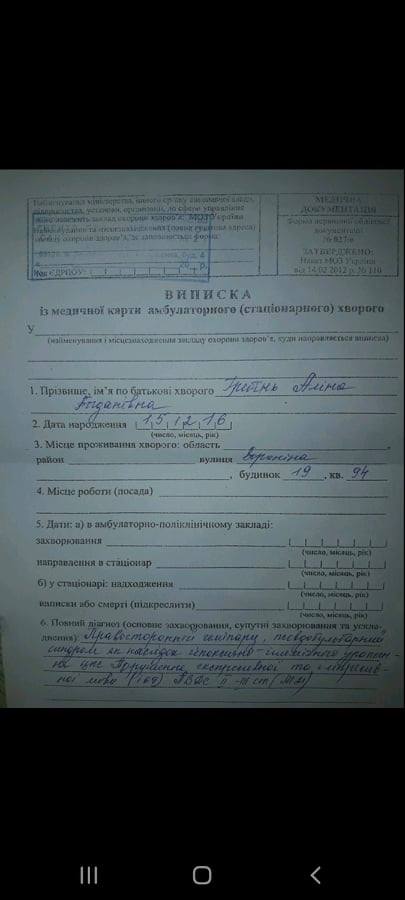 Найменування міністерства, іншого органу виконавчої влади,
підприємства, установи, організації, до сфери управління
якого належить заклад охорони здоров'я: МОЗ України
Найменування та місцезнаходження (повна поштова адреса)
закладу охорони здоров'я, де заповнюється форма:
Код ЄДРПОУ:
МЕДИЧНА
ДОКУМЕНТАЦІЯ
Форма первинної облікової
документації
№ 027/о
ЗАТВЕРДЖЕНО:
Наказ МОЗ України
від 14.02 2012 р. № 110
ВИПИСКА
із медичної карти амбулаторного (стаціонарного) хворого
У
(найменування і місцезнаходження закладу охорони здоров'я, куди направляється виписка)
1. Прізвище, ім'я по батькові хворого Гребінь Аліна
Богданівна
2. Дата народження 15 12 16
(число, місяць, рік)
3. Місце проживання хворого: область
район вулиця Вороніна
, будинок 19 , кв. 94
4. Місце роботи (посада)
5. Дати: а) в амбулаторно-поліклінічному закладі:
захворювання
(число, місяць, рік)
направлення в стаціонар
(число, місяць, рік)
б) у стаціонарі: надходження
(число, місяць, рік)
виписки або смерті (підкреслити)
(число, місяць, рік)
6. Повний діагноз (основне захворювання, супутні захворювання та усклад-
нення): Правосторонній геміпарез, псевдобульбарний
синдром як наслідок гіпоксивно-ішемічного уражен-
ня цнс Порушення експресивної та імпресив-
ної мови